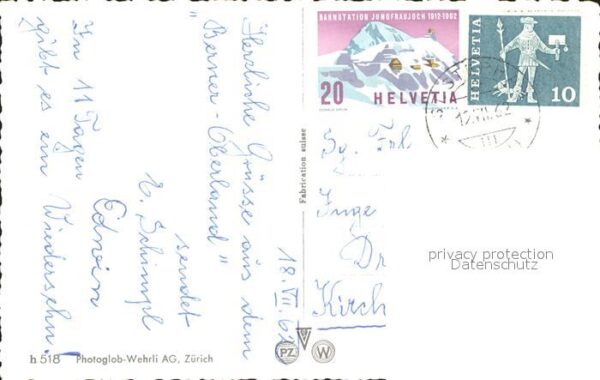 BAHNSTATION JUNGFRAUJOCH 1912-1962
20 HELVETIA
HELVETIA
10
18. VII. 62
Herzliche Grüsse aus dem
"Berner-Oberland"
sendet
E. Schimpl
Edwin
In 11 Tagen
gibt es ein Wiedersehn!
Fabrication suisse
Inge
Dr
Kirch
privacy protection
Datenschutz
h 518 Photoglob-Wehrli AG, Zürich
PZ W